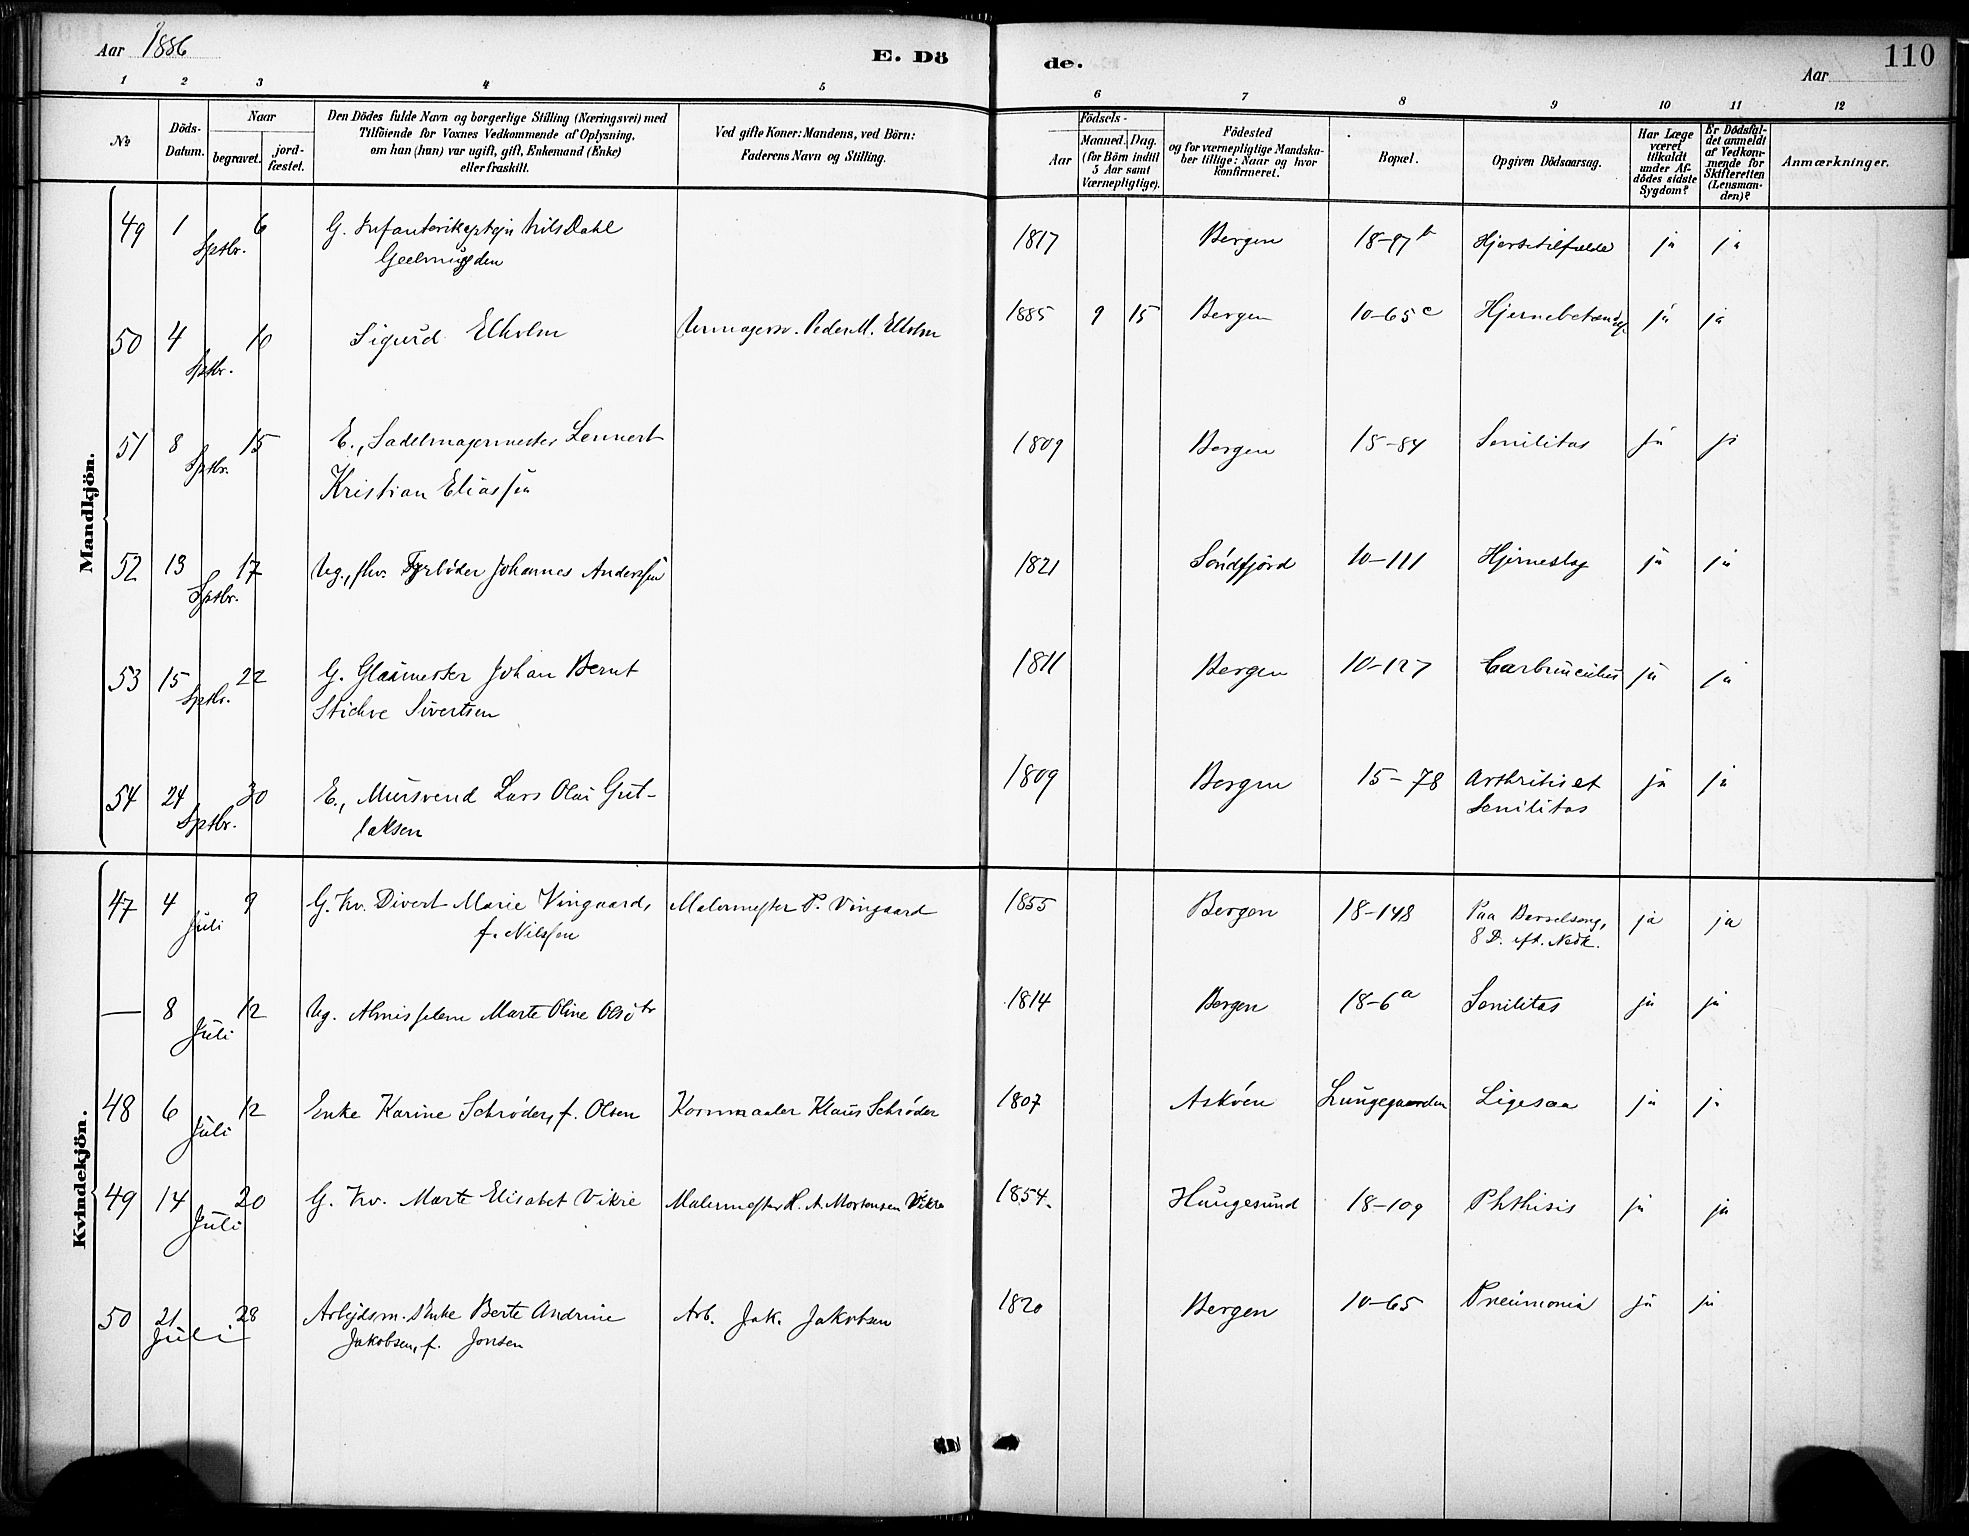 Aar 1886
E. Dö
de.
Aar
110
1 2 3 4 5 6 7 8 9 10 11 12
No
Döds-
Datum.
Naar
begravet.
jord-
fæstet.
Den Dödes fulde Navn og borgerlige Stilling (Næringsvei) med
Tilföiende for Voxnes Vedkommende af Oplysning,
om han (hun) var ugift, gift, Enkemand (Enke)
eller fraskilt.
Ved gifte Koner: Mandens, ved Börn:
Faderens Navn og Stilling.
Födsels-
Aar
Maaned. Dag.
(for Börn indtil
5 Aar samt
Værnepligtige).
Födested
og for værnepligtige Mandska-
ber tillige: Naar og hvor
konfirmeret.
Bopæl.
Opgiven Dödsaarsag.
Har Læge
været
tilkaldt
under Af-
dödes sidste
Sygdom?
Er Dödsfal-
det anmeldt
af Vedkom-
mende for
Skifteretten
(Lensman-
den)?
Anmærkninger.
Mandkjön.
49 1 Sptbr. 6 G. Infanterikaptejn Nils Dahl 1817 Bergen 18-97b Hjertetilfælde ja ja
Geelmuyden
50 4 Sptbr. 10 Sigurd Elholm Urmagersv. Peder M. Elholm 1885 9 15 Bergen 10-65c Hjernebetændls. ja ja
51 8 Sptbr. 15 E., Sadelmagermester Lennert 1809 Bergen 15-84 Senilitas ja ja
Kristian Eliassen
52 13 Sptbr. 17 Ug., fhv. Fyrbøder Johannes Anderssen 1821 Søndfjord 10-111 Hjerneslag ja ja
53 15 Sptbr. 22 G. Glasmester Johan Bernt 1811 Bergen 10-127 Carbunculus ja ja
Sivertsen
54 24 Sptbr. 30 E., Mursvend Lars Olai Gut- 1809 Bergen 15-78 Arthritis et ja ja
laksen
Senilitas
Kvindekjön.
47 4 Juli 9 G. Kv. Divert Marie Vingaard, Malermester P. Vingaard 1855 Bergen 18-148 Paa Barselseng, ja ja
f. Nilssen
8 D. eft. Nedk.
— 8 Juli 12 Ug. Almisselem Marte Oline Olsdtr 1814 Bergen 18-6a Senilitas ja ja
48 6 Juli 12 Enke Karine Schrøder, f. Olsen Kornmaaler Klaus Schrøder 1807 Askøen Lungegaarden Ligesaa ja ja
49 14 Juli 20 G. Kv. Marte Elisabet Vikre Malermester H. A. Mortensen Vikre 1854. Haugesund 18-109 Phthisis ja ja
50 21 Juli 28 Arbejdsm. Enke Berte Andrine Arb. Jak. Jakobsen 1820 Bergen 10-65 Pneumonia ja ja
Jakobsen, f. Jonsen